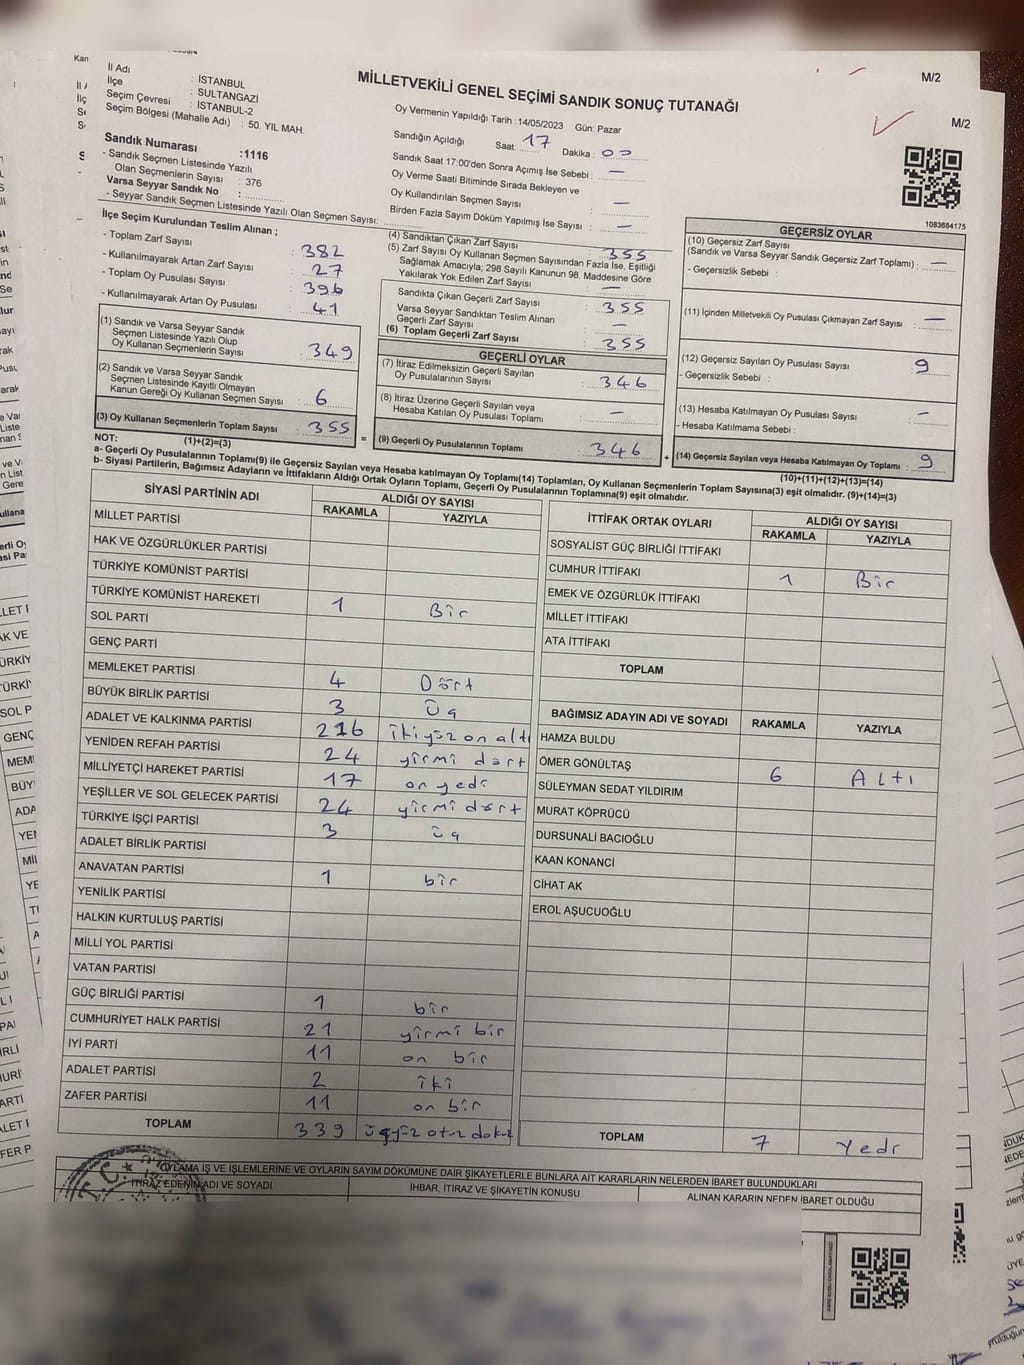 M/2
M/2
MİLLETVEKİLİ GENEL SEÇİMİ SANDIK SONUÇ TUTANAĞI
İl Adı : İSTANBUL
İlçe : SULTANGAZİ
Seçim Çevresi : İSTANBUL-2
Seçim Bölgesi (Mahalle Adı) : 50. YIL MAH.
Sandık Numarası :1116
- Sandık Seçmen Listesinde Yazılı
Olan Seçmenlerin Sayısı : 376
Varsa Seyyar Sandık No :
- Seyyar Sandık Seçmen Listesinde Yazılı Olan Seçmen Sayısı:
Oy Vermenin Yapıldığı Tarih : 14/05/2023 Gün: Pazar
Sandığın Açıldığı Saat: 17 Dakika : 00
Sandık Saat 17:00'den Sonra Açımış İse Sebebi : —
Oy Verme Saati Bitiminde Sırada Bekleyen ve
Oy Kullandırılan Seçmen Sayısı : —
Birden Fazla Sayım Döküm Yapılmış İse Sayısı : —
1083684175
İlçe Seçim Kurulundan Teslim Alınan ;
- Toplam Zarf Sayısı : 382
- Kullanılmayarak Artan Zarf Sayısı : 27
- Toplam Oy Pusulası Sayısı : 396
- Kullanılmayarak Artan Oy Pusulası : 41
(1) Sandık ve Varsa Seyyar Sandık
Seçmen Listesinde Yazılı Olup
Oy Kullanan Seçmenlerin Sayısı : 349
(2) Sandık ve Varsa Seyyar Sandık
Seçmen Listesinde Kayıtlı Olmayan
Kanun Gereği Oy Kullanan Seçmen Sayısı : 6
(3) Oy Kullanan Seçmenlerin Toplam Sayısı : 355
(1)+(2)=(3)
(4) Sandıktan Çıkan Zarf Sayısı : 355
(5) Zarf Sayısı Oy Kullanan Seçmen Sayısından Fazla İse, Eşitliği
Sağlamak Amacıyla; 298 Sayılı Kanunun 98. Maddesine Göre
Yakılarak Yok Edilen Zarf Sayısı : —
Sandıkta Çıkan Geçerli Zarf Sayısı : 355
Varsa Seyyar Sandıktan Teslim Alınan
Geçerli Zarf Sayısı : —
(6) Toplam Geçerli Zarf Sayısı : 355
GEÇERLİ OYLAR
(7) İtiraz Edilmeksizin Geçerli Sayılan
Oy Pusulalarının Sayısı : 346
(8) İtiraz Üzerine Geçerli Sayılan veya
Hesaba Katılan Oy Pusulası Toplamı : —
= (9) Geçerli Oy Pusulalarının Toplamı : 346 +
GEÇERSİZ OYLAR
(10) Geçersiz Zarf Sayısı
(Sandık ve Varsa Seyyar Sandık Geçersiz Zarf Toplamı) : —
- Geçersizlik Sebebi :
(11) İçinden Milletvekili Oy Pusulası Çıkmayan Zarf Sayısı : —
(12) Geçersiz Sayılan Oy Pusulası Sayısı : 9
- Geçersizlik Sebebi :
(13) Hesaba Katılmayan Oy Pusulası Sayısı : -
- Hesaba Katılmama Sebebi :
(14) Geçersiz Sayılan veya Hesaba Katılmayan Oy Toplamı : 9
(10)+(11)+(12)+(13)=(14)
NOT:
a- Geçerli Oy Pusulalarının Toplamı(9) ile Geçersiz Sayılan veya Hesaba katılmayan Oy Toplamı(14) Toplamları, Oy Kullanan Seçmenlerin Toplam Sayısına(3) eşit olmalıdır. (9)+(14)=(3)
b- Siyasi Partilerin, Bağımsız Adayların ve İttifakların Aldığı Ortak Oyların Toplamı, Geçerli Oy Pusulalarının Toplamına(9) eşit olmalıdır.
SİYASİ PARTİNİN ADI ALDIĞI OY SAYISI
RAKAMLA YAZIYLA
MİLLET PARTİSİ
HAK VE ÖZGÜRLÜKLER PARTİSİ
TÜRKİYE KOMÜNİST PARTİSİ
TÜRKİYE KOMÜNİST HAREKETİ 1 Bir
SOL PARTİ
GENÇ PARTİ
MEMLEKET PARTİSİ 4 Dört
BÜYÜK BİRLİK PARTİSİ 3 üç
ADALET VE KALKINMA PARTİSİ 216 ikiyüz on altı
YENİDEN REFAH PARTİSİ 24 yirmi dört
MİLLİYETÇİ HAREKET PARTİSİ 17 on yedi
YEŞİLLER VE SOL GELECEK PARTİSİ 24 yirmi dört
TÜRKİYE İŞÇİ PARTİSİ 3 üç
ADALET BİRLİK PARTİSİ
ANAVATAN PARTİSİ 1 bir
YENİLİK PARTİSİ
HALKIN KURTULUŞ PARTİSİ
MİLLİ YOL PARTİSİ
VATAN PARTİSİ
GÜÇ BİRLİĞİ PARTİSİ 1 bir
CUMHURİYET HALK PARTİSİ 21 yirmi bir
İYİ PARTİ 11 on bir
ADALET PARTİSİ 2 iki
ZAFER PARTİSİ 11 on bir
TOPLAM 339 üçyüz otuz dokuz
İTTİFAK ORTAK OYLARI ALDIĞI OY SAYISI
RAKAMLA YAZIYLA
SOSYALİST GÜÇ BİRLİĞİ İTTİFAKI
CUMHUR İTTİFAKI 1 Bir
EMEK VE ÖZGÜRLÜK İTTİFAKI
MİLLET İTTİFAKI
ATA İTTİFAKI
TOPLAM
BAĞIMSIZ ADAYIN ADI VE SOYADI RAKAMLA YAZIYLA
HAMZA BULDU
ÖMER GÖNÜLTAŞ 6 Altı
SÜLEYMAN SEDAT YILDIRIM
MURAT KÖPRÜCÜ
DURSUNALİ BACIOĞLU
KAAN KONANCİ
CİHAT AK
EROL AŞUCUOĞLU
TOPLAM 7 Yedi
OYLAMA İŞ VE İŞLEMLERİNE VE OYLARIN SAYIM DÖKÜMÜNE DAİR ŞİKAYETLERLE BUNLARA AİT KARARLARIN NELERDEN İBARET BULUNDUKLARI
İTİRAZ EDENİN ADI VE SOYADI İHBAR, İTİRAZ VE ŞİKAYETİN KONUSU ALINAN KARARIN NEDEN İBARET OLDUĞU
T.C.